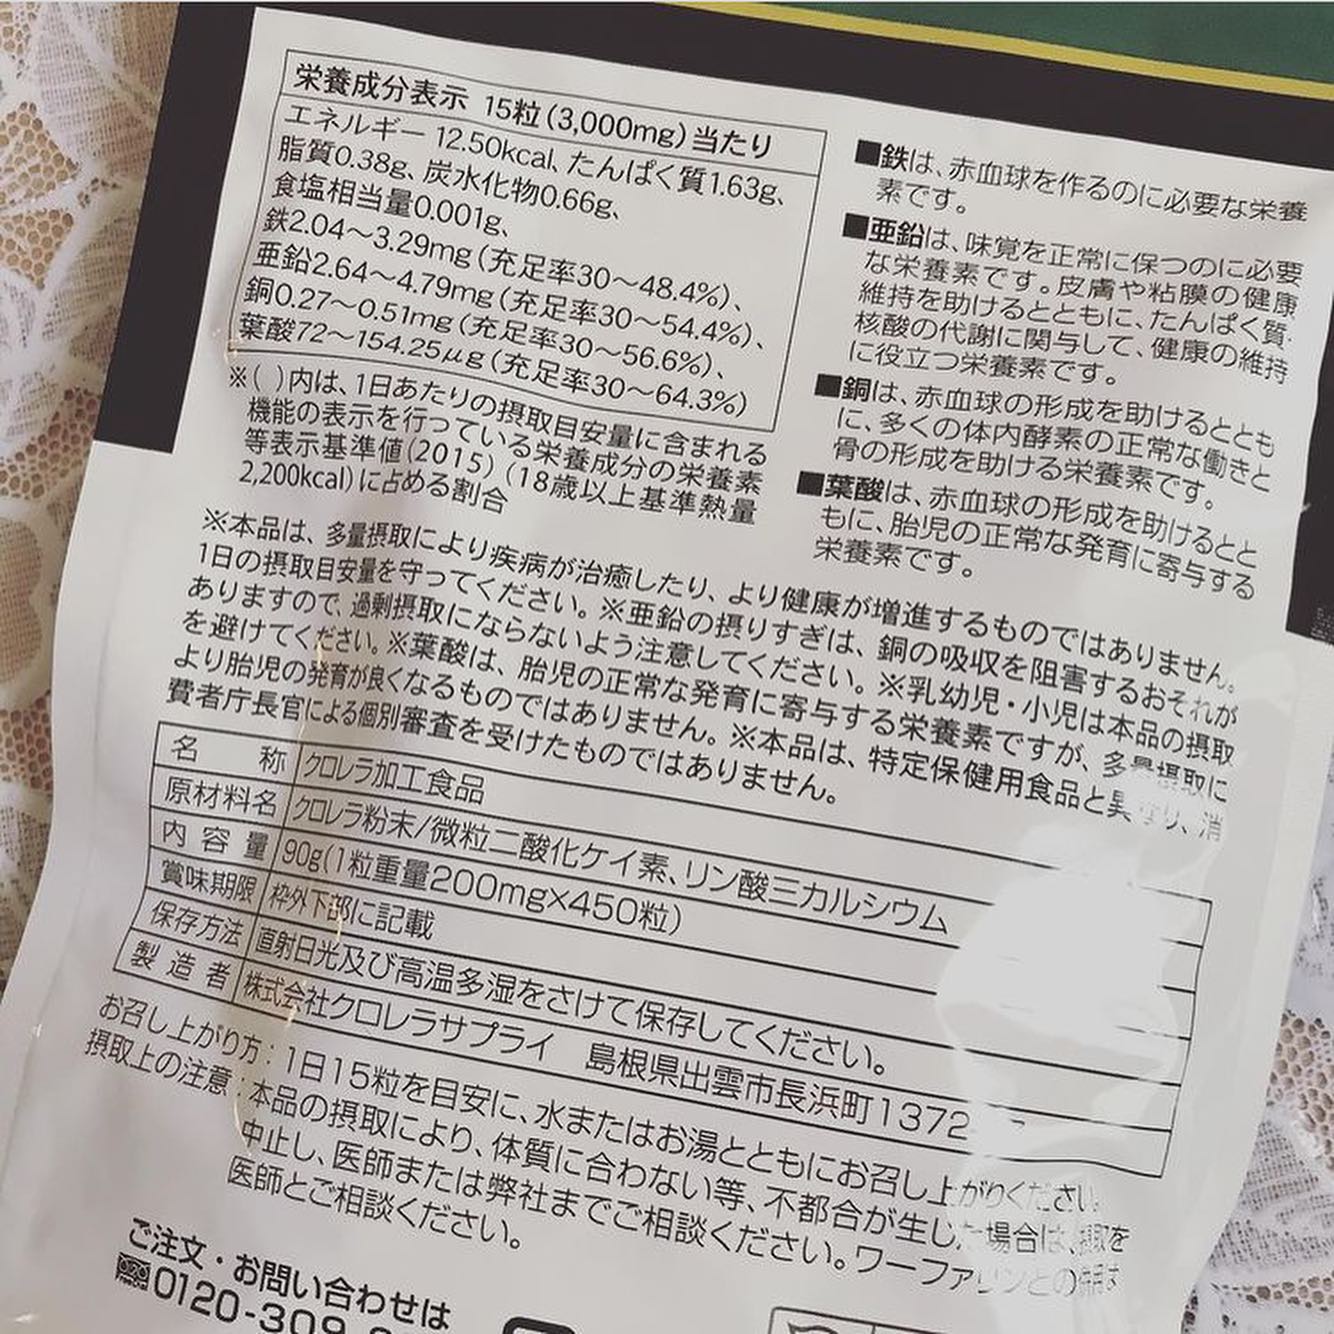 栄養成分表示 15粒(3,000mg)当たり
エネルギー 12.50kcal、たんぱく質1.63g、
脂質0.38g、炭水化物0.66g、
食塩相当量0.001g、
鉄2.04～3.29mg(充足率30～48.4%)、
亜鉛2.64～4.79mg(充足率30～54.4%)、
銅0.27～0.51mg(充足率30～56.6%)、
葉酸72～154.25μg(充足率30～64.3%)
※( )内は、1日あたりの摂取目安量に含まれる
機能の表示を行っている栄養成分の栄養素
等表示基準値(2015)(18歳以上基準熱量
2,200kcal)に占める割合
■鉄は、赤血球を作るのに必要な栄養
素です。
■亜鉛は、味覚を正常に保つのに必要
な栄養素です。皮膚や粘膜の健康
維持を助けるとともに、たんぱく質・
核酸の代謝に関与して、健康の維持
に役立つ栄養素です。
■銅は、赤血球の形成を助けるととも
に、多くの体内酵素の正常な働きと
骨の形成を助ける栄養素です。
■葉酸は、赤血球の形成を助けるとと
もに、胎児の正常な発育に寄与する
栄養素です。
※本品は、多量摂取により疾病が治癒したり、より健康が増進するものではありません。
1日の摂取目安量を守ってください。※亜鉛の摂りすぎは、銅の吸収を阻害するおそれが
ありますので、過剰摂取にならないよう注意してください。※乳幼児・小児は本品の摂取
を避けてください。※葉酸は、胎児の正常な発育に寄与する栄養素ですが、多量摂取に
より胎児の発育が良くなるものではありません。※本品は、特定保健用食品と異なり、消
費者庁長官による個別審査を受けたものではありません。
名称 クロレラ加工食品
原材料名 クロレラ粉末/微粒二酸化ケイ素、リン酸三カルシウム
内容量 90g(1粒重量200mg×450粒)
賞味期限 枠外下部に記載
保存方法 直射日光及び高温多湿をさけて保存してください。
製造者 株式会社クロレラサプライ 島根県出雲市長浜町1372
お召し上がり方：1日15粒を目安に、水またはお湯とともにお召し上がりください。
摂取上の注意：本品の摂取により、体質に合わない等、不都合が生じた場合は、摂取を
中止し、医師または弊社までご相談ください。ワーファリンとの併用は
医師とご相談ください。
ご注文・お問い合わせは
0120-309